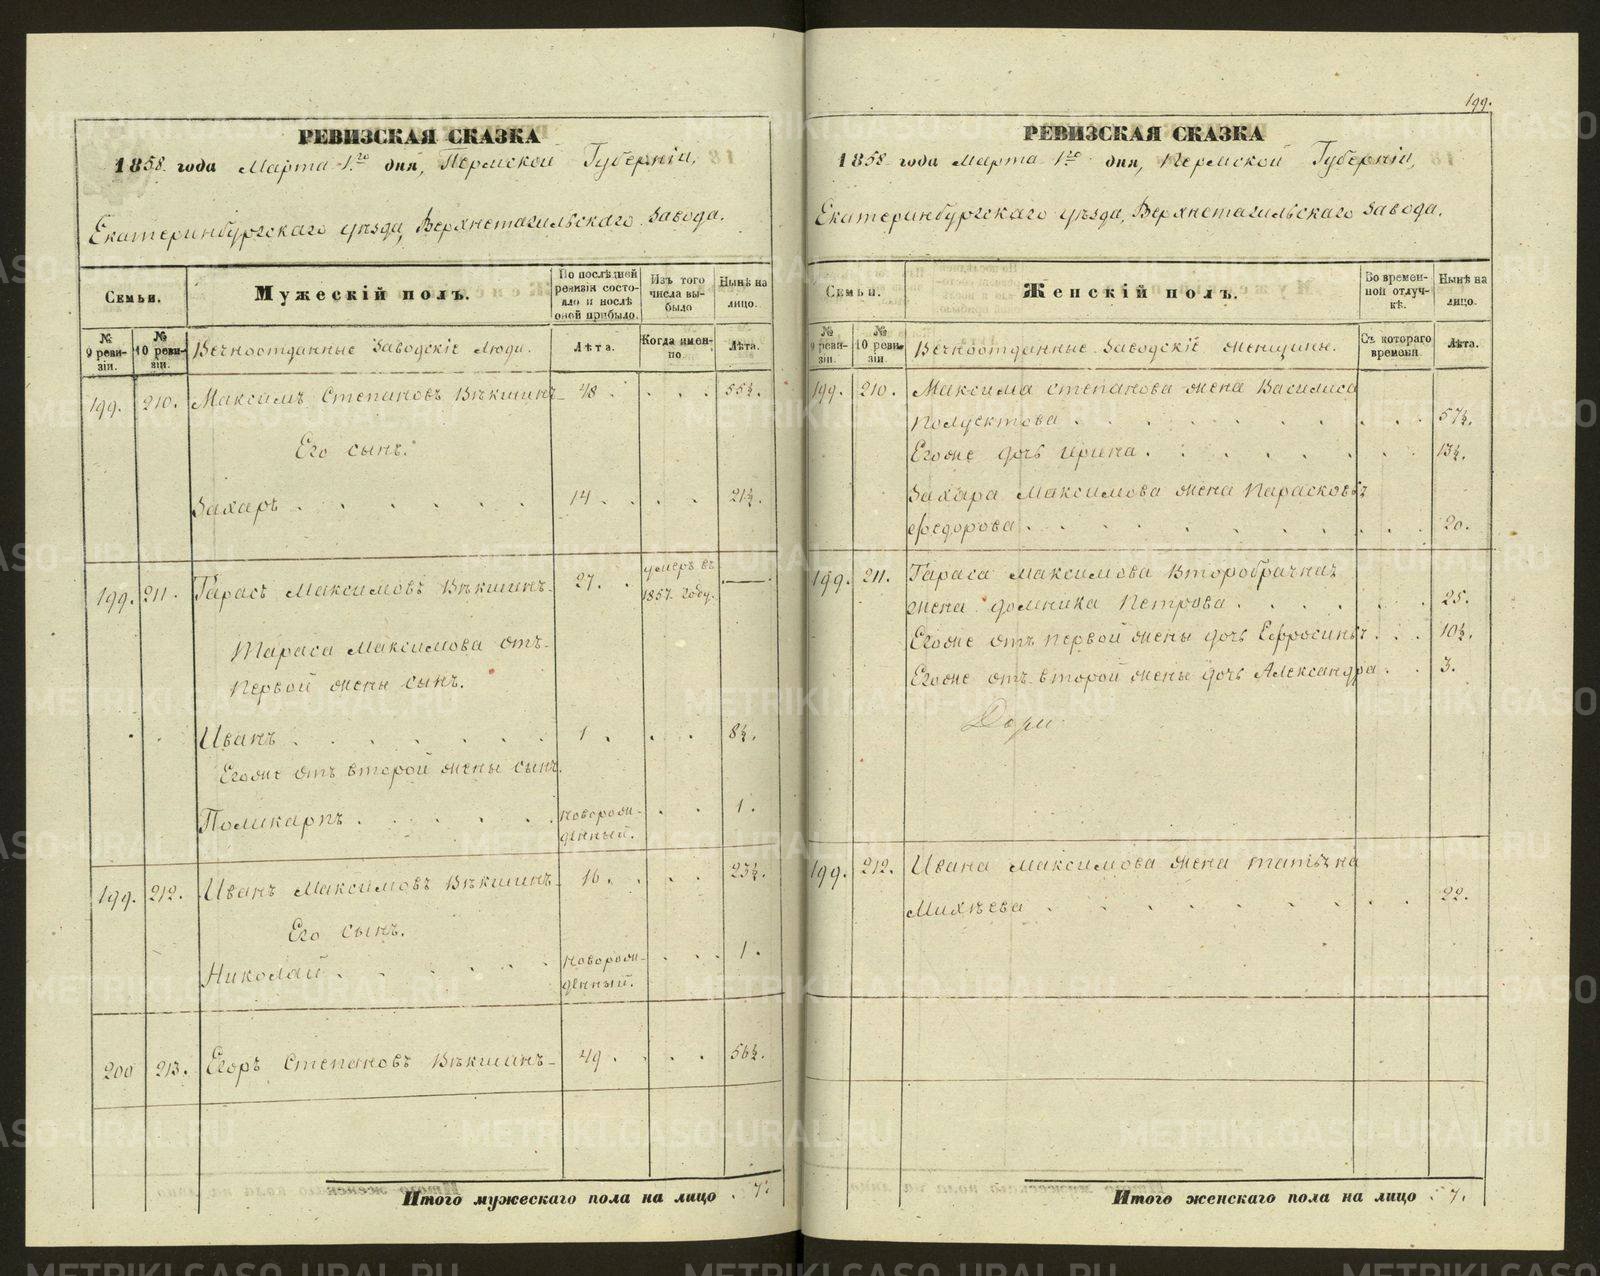 РЕВИЗСКАЯ СКАЗКА
1858 года Марта 1го дня, Пермской Губерніи,
Екатеринбургскаго уѣзда, Верхнетагильскаго Завода.
Семьи.
Мужескій полъ.
По послѣдней ревизіи состояло и послѣ оной прибыло.
Изъ того числа выбыло
Нынѣ на лицо.
№ 9 ревизіи.
№ 10 ревизіи.
Вечноотданные Заводскіе Люди.
Лѣта.
Когда именно.
Лѣта.
199. 210. Максимъ Степановъ Вѣкшинъ 48 . . . 55½.
Его сынъ.
Захаръ . . . . . . 14 . . . 21½.
199. 211. Тарасъ Максимовъ Вѣкшинъ 27. . умеръ въ 1857 году. —
Тараса Максимова отъ
первой жены сынъ.
Иванъ . . . . . . 1 . . . 8½.
Егоже отъ второй жены сынъ.
Поликарпъ . . . . . новорожденный. . . 1.
199. 212. Иванъ Максимовъ Вѣкшинъ 16 . . . 23½.
Его сынъ.
Николай . . . . . новорожденный. . . . 1.
200 213. Егоръ Степановъ Вѣкшинъ 49 . . . 56½.
Итого мужескаго пола на лицо . 7.
199.
РЕВИЗСКАЯ СКАЗКА
1858 года Марта 1го дня, Пермской Губерніи,
Екатеринбургскаго уѣзда, Верхнетагильскаго Завода.
Семьи.
Женскій полъ.
Во временной отлучкѣ.
Нынѣ на лицо.
№ 9 ревизіи.
№ 10 ревизіи.
Вечноотданные Заводскіе женщины.
Съ котораго времени.
Лѣта.
199. 210. Максима Степанова жена Василиса
Полуектова . . . . . . . . 57½.
Егоже дочь Ирина . . . . . . . 13½.
Захара Максимова жена Парасковья
Федорова . . . . . . . . 20.
199. 211. Тараса Максимова второбрачная
жена Домника Петрова . . . . . . 25.
Егоже отъ первой жены дочь Ефросинья . . . 10½.
Егоже отъ второй жены дочь Александра . . 3.
199. 212. Ивана Максимова жена Татьяна
Михѣева . . . . . . . . 22.
Итого женскаго пола на лицо . 7.
METRIKI.GASO-URAL.RU